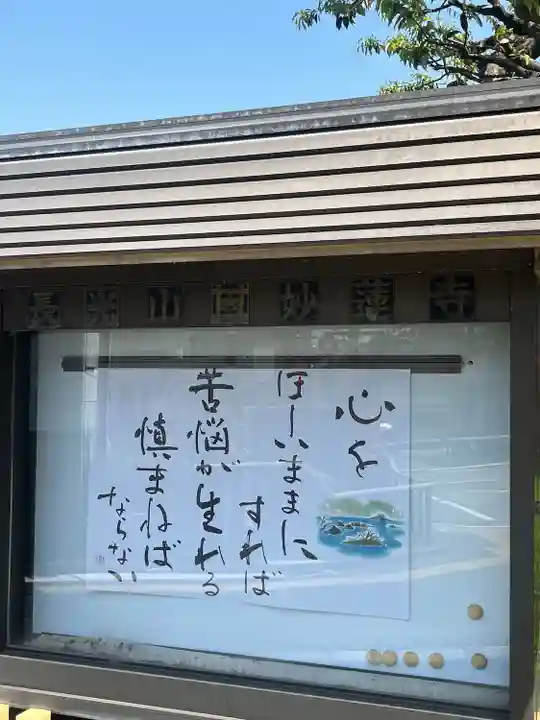 長光山国妙蓮寺
心を
ほしいままに
すれば
苦悩が生れる
慎まねば
ならない